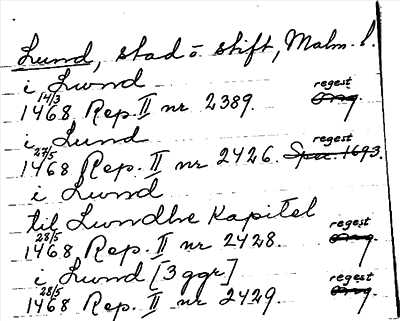 Lund, stad o. stift, Malm. l.
i Lund
14/3 1468 Rep. II nr 2389. regest Orig.
i Lund
27/5 1468 Rep. II nr 2426. regest Spec. 1693.
i Lund
til Lundhe Kapitel
28/5 1468 Rep. II nr 2428. regest Orig.
i Lund [3 ggr]
28/5 1468 Rep. II nr 2429. regest Orig.